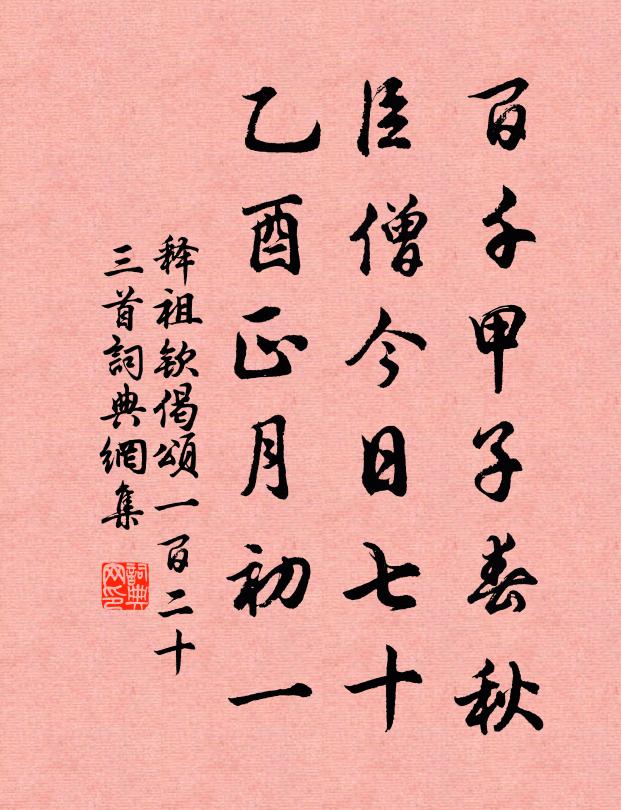 百千甲子春秋
臣僧今日七十
乙酉正月初一
释祖钦偈頌一百二十
三首詞典網集
詞典
网印